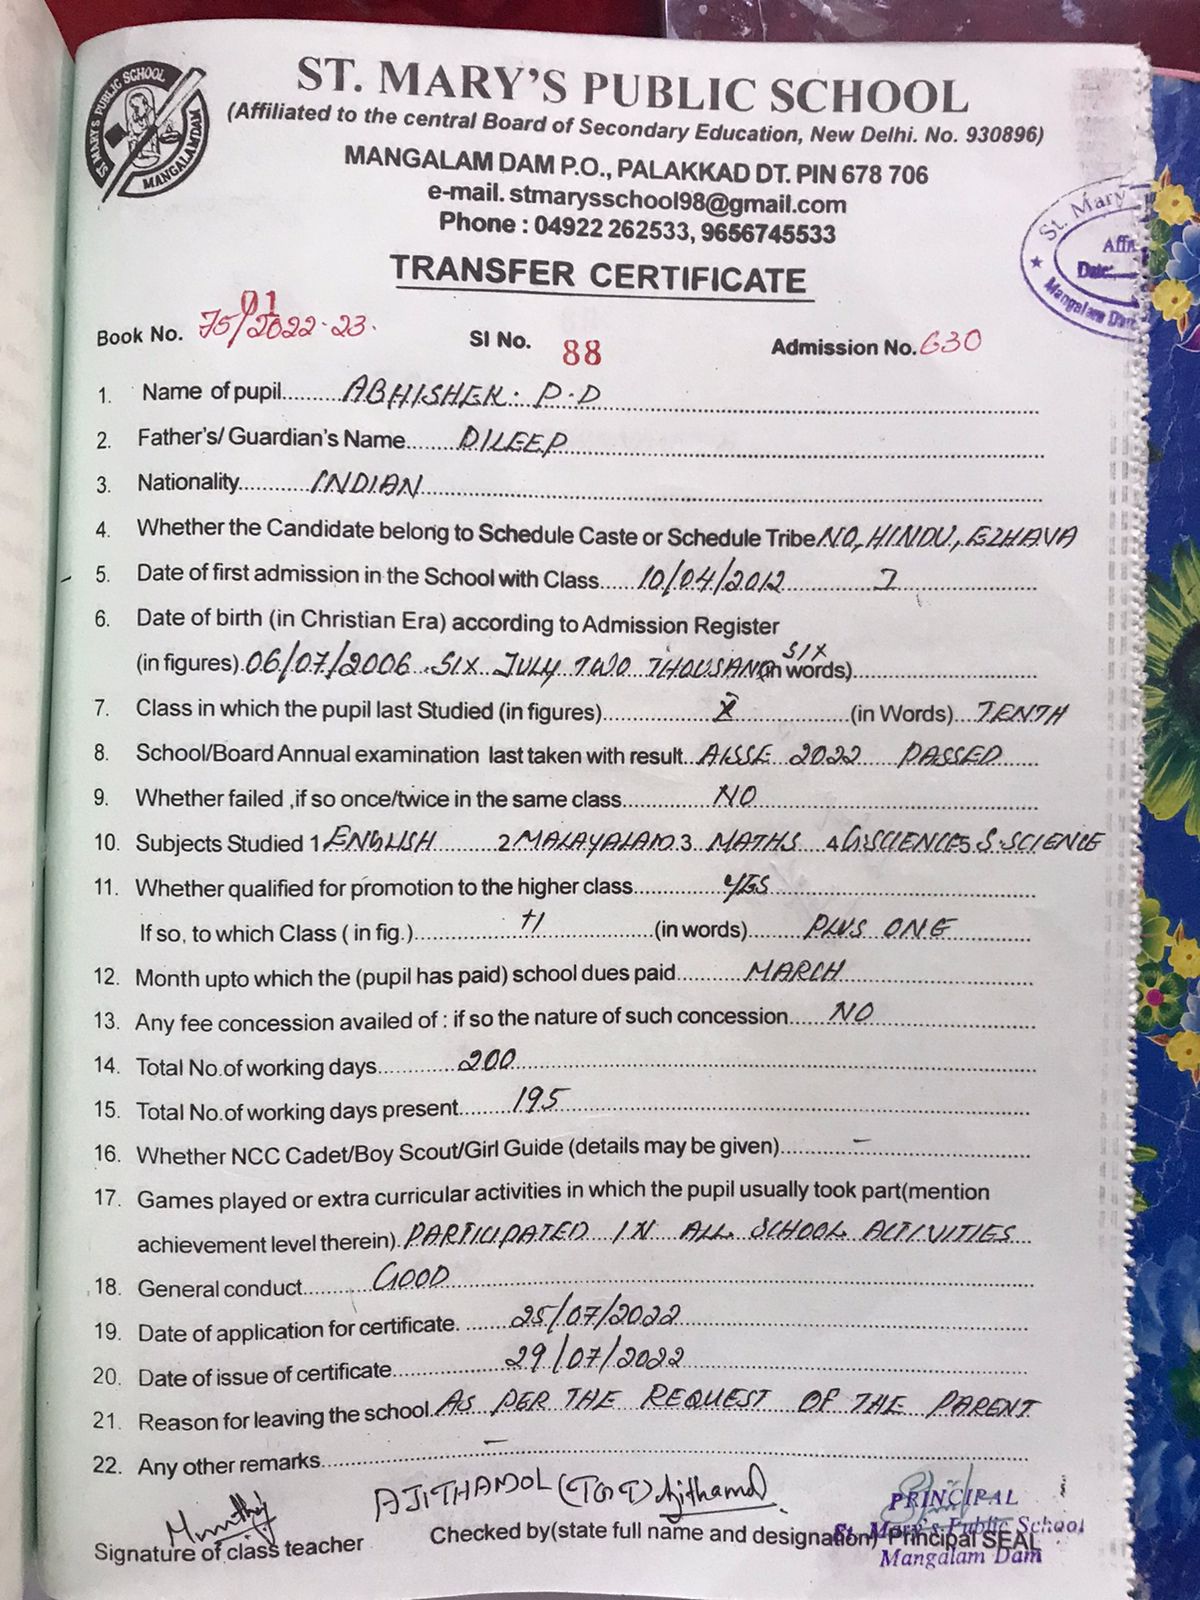 ST. MARY'S PUBLIC SCHOOL
MANGALAMDAM
ST. MARY'S PUBLIC SCHOOL
(Affiliated to the central Board of Secondary Education, New Delhi. No. 930896)
MANGALAM DAM P.O., PALAKKAD DT. PIN 678 706
e-mail. stmarysschool98@gmail.com
Phone : 04922 262533, 9656745533
St. Mary
Affi
Date:
Mangalam Dam
TRANSFER CERTIFICATE
01
Book No. 75/2022-23. SI No. 88 Admission No. 630
1. Name of pupil ABHISHEK. P.D
2. Father's/ Guardian's Name DILEEP
3. Nationality INDIAN
4. Whether the Candidate belong to Schedule Caste or Schedule Tribe NO, HINDU, EZHAVA
5. Date of first admission in the School with Class 10/04/2012 I
6. Date of birth (in Christian Era) according to Admission Register
(in figures) 06/07/2006 SIX JULY TWO THOUSAND SIX (in words)
7. Class in which the pupil last Studied (in figures) X (in Words) TENTH
8. School/Board Annual examination last taken with result AISSE 2022 PASSED
9. Whether failed ,if so once/twice in the same class NO
10. Subjects Studied 1 ENGLISH 2 MALAYALAM 3 MATHS 4 G.SCIENCE 5 S.SCIENCE
11. Whether qualified for promotion to the higher class YES
If so, to which Class ( in fig.) +1 (in words) PLUS ONE
12. Month upto which the (pupil has paid) school dues paid MARCH
13. Any fee concession availed of : if so the nature of such concession NO
14. Total No.of working days 200
15. Total No.of working days present 195
16. Whether NCC Cadet/Boy Scout/Girl Guide (details may be given) –
17. Games played or extra curricular activities in which the pupil usually took part(mention
achievement level therein) PARTICIPATED IN ALL SCHOOL ACTIVITIES
18. General conduct GOOD
19. Date of application for certificate. 25/07/2022
20. Date of issue of certificate 29/07/2022
21. Reason for leaving the school AS PER THE REQUEST OF THE PARENT
22. Any other remarks –
AJITHAMOL (TGT) Ajithamol
PRINCIPAL
St. Mary's Public School
Mangalam Dam
Signature of class teacher Checked by(state full name and designation) Principal SEAL